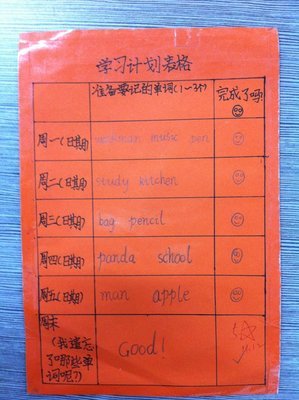 学习计划表格
准备要记的单词(1~3个) 完成了吗?
周一(日期) music pen
周二(日期) study kitchen
周三(日期) bag pencil
周四(日期) panda school
周五(日期) man apple
周末
(我遗忘了哪些单词呢?) Good!